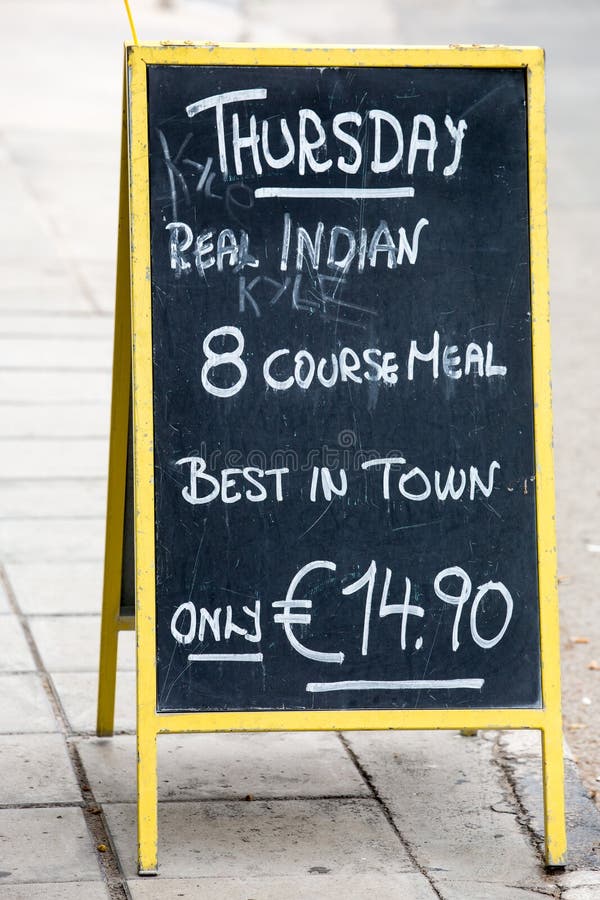 THURSDAY
KYLE
REAL INDIAN
KYLE
8 COURSE MEAL
BEST IN TOWN
ONLY €14.90